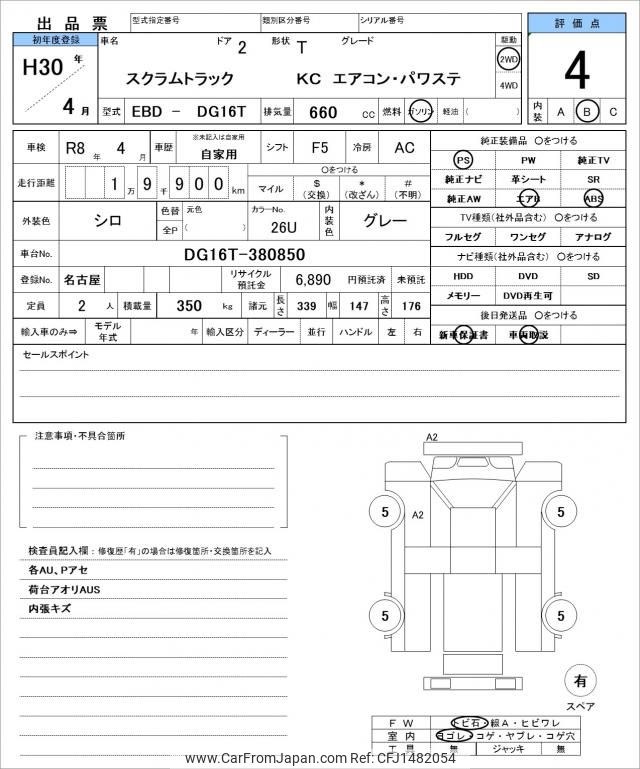 出品票 型式指定番号 類別区分番号 シリアル番号
評価点
4
内装 A B C
初年度登録 車名 ドア 2 形状 T グレード 駆動
H30 年 4 月
スクラムトラック KC エアコン・パワステ
2WD
4WD
型式 EBD - DG16T 排気量 660 CC 燃料 ガソリン 軽油 ( )
車検 R8 年 4 月 車歴 ※未記入は自家用 自家用 シフト F5 冷房 AC
走行距離 1 万 9 千 9 0 0 km マイル $ (交換) * (改ざん) # (不明)
〇をつける
外装色 シロ 色替 全P 元色 ( ) カラーNo. 26U 内装色 グレー
車台No. DG16T-380850
登録No. 名古屋 リサイクル預託金 6,890 円預託済 未預託
定員 2 人 積載量 350 kg 諸元 長さ 339 幅 147 高さ 176
輸入車のみ⇒ モデル年式 年 輸入区分 ディーラー 並行 ハンドル 左 右
純正装備品 〇をつける
PS PW 純正TV
純正ナビ 革シート SR
純正AW エアB ABS
TV種類(社外品含む) 〇をつける
フルセグ ワンセグ アナログ
ナビ種類(社外品含む) 〇をつける
HDD DVD SD
メモリー DVD再生可
後日発送品 〇をつける
新車保証書 車両取説
セールスポイント
注意事項・不具合箇所
検査員記入欄：修復歴「有」の場合は修復箇所・交換箇所を記入
各AU、Pアセ
荷台アオリAUS
内張キズ
A2
A2
5 5
5 5
有
スペア
FW トビ石・線A・ヒビワレ
室内 ヨゴレ・コゲ・ヤブレ・コゲ穴
工具 無 ジャッキ 無
www.CarFromJapan.com Ref: CFJ1482054